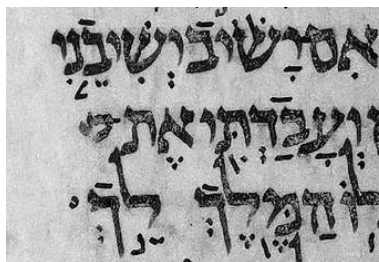 אִם יָשִׁיב יְשִׁיבֵנִי
וְעָבַדְתִּי אֶת
לוֹ הַמֶּלֶךְ לֵךְ